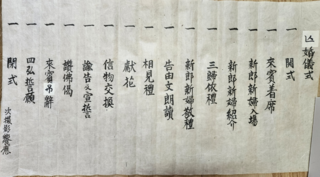 婚儀式
一 開式
一 來賓着席
一 新郎新婦入場
一 新郎新婦紹介
一 三歸依禮
一 新郎新婦敬禮
一 告由文朗讀
一 相見禮
一 獻花
一 信物交換
一 誓告文宣誓
一 讚佛偈
一 來賓祝辭
一 四弘誓願
一 閉式